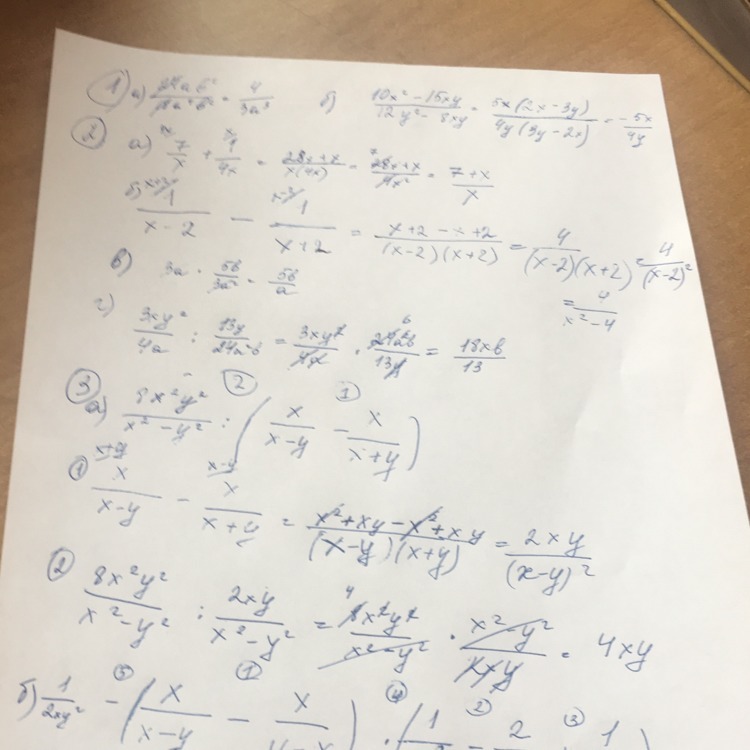 ① а) = 4/3a³ б) (10x² - 15xy)/(12y² - 8xy) = 5x(2x - 3y)/4y(3y - 2x) = -5x/4y
② а) 7/x + 1/4x = (28x+x)/x(4x) = (28x+x)/4x² = (7+x)/x
б) 1/(x-2) - 1/(x+2) = (x+2-x+2)/(x-2)(x+2) = 4/(x-2)(x+2) = 4/(x-2)²
= 4/(x²-4)
в) 3a · 5b/3a² = 5b/a
г) 3xy²/4a : 13y/24a²b = 3xy²/4a · 24a²b/13y 6 = 18xb/13
③ ② ①
а) 8x²y²/(x²-y²) : (x/(x-y) - x/(x+y))
① x+y x-y
x/(x-y) - x/(x+y) = (x²+xy-x²+xy)/(x-y)(x+y) = 2xy/(x-y)²
② 8x²y²/(x²-y²) : 2xy/(x²-y²) = 4 8x²y²/(x²-y²) · (x²-y²)/2xy = 4xy
⑤ ① ④ ② ③
б) 1/2xy² - (x/(x-y) - x/ ) · (1 - 2 1)